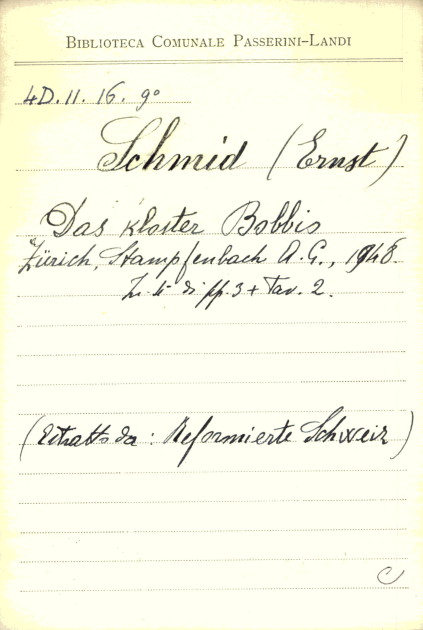 BIBLIOTECA COMUNALE PASSERINI-LANDI
4D.11.16.9°
Schmid (Ernst)
Das Kloster Bobbio
Zürich, Stampfenbach A.G., 1948.
di pp. 3 + Tav. 2.
(Estratto da: Reformierte Schweiz)